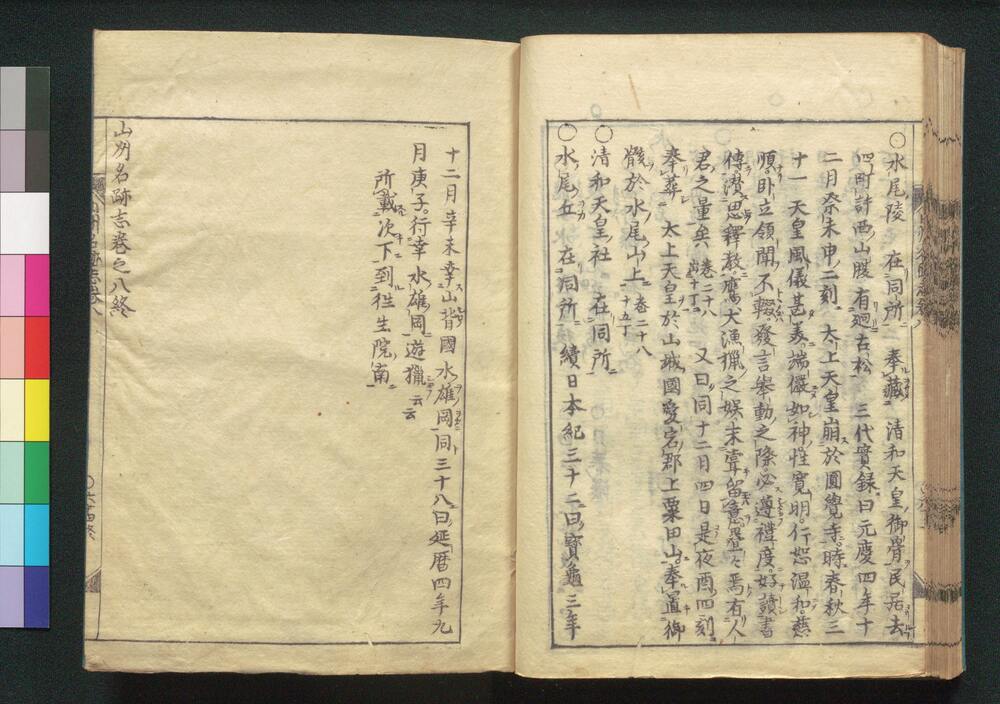 ○水尾陵 在同所 奉藏 清和天皇御骨民居去
四町許西山腹有廻古松 三代實録曰元慶四年十
二月癸未申二刻 太上天皇崩於圓覺寺時春秋三
十一 天皇風儀甚美端儼如神性寛明行恕温和慈
順卧立領聞不輟發言擧動之際必遵禮度好讀書
傳潜思釋教鷹犬漁獵之娯未甞留意疊々焉有人
君之量矣 卷二十八 又曰同十二月四日是夜酉四刻
奉葬 太上天皇於山城國愛宕郡上粟田山奉置御
骸於水尾山上 卷二十八 十五丁
○清和天皇社 在同所
○水尾丘 在同所 續日本紀三十二曰寶龜三年
十二月辛未幸山背國水雄岡同三十八曰延暦四年九
月庚子行幸水雄岡遊獵云云
所載次下到往生院南
山州名跡志卷之八終